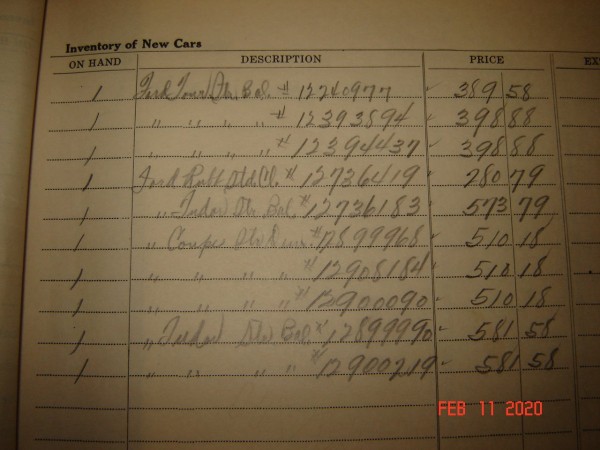 Inventory of New Cars
ON HAND DESCRIPTION PRICE EX
1 Ford Tour Str. Bal. # 12240977 389 58
1 " " " " # 12393894 398 88
1 " " " " # 12394437 398 88
1 Ford Std. # 12736419 280 79
1 " Tudor Str. Bal. # 12736183 573 79
1 " Coupe Str. # 12899968 510 18
1 " " " " # 12908184 510 18
1 " " " " # 12900090 510 18
1 " Tudor Str. Bal. # 12899990 581 58
1 " " " " # 12900219 581 58
FEB 11 2020